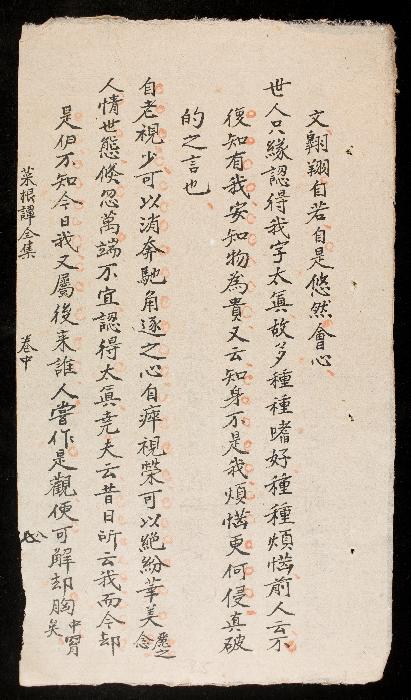 文翱翔自若自是悠然會心
世人只緣認得我字太眞故多種種嗜好種種煩惱前人云不
復知有我安知物為貴又云知身不是我煩惱更何侵真破
的之言也
自老視少可以消奔馳角逐之心自瘁視榮可以絕紛華美
麗之念
人情世態倐忽萬端不宜認得太眞堯夫云昔日所云我而今却
是伊不知今日我又屬後来誰人嘗作是觀便可解却胸
中罥矣
菜根譚全集 卷中